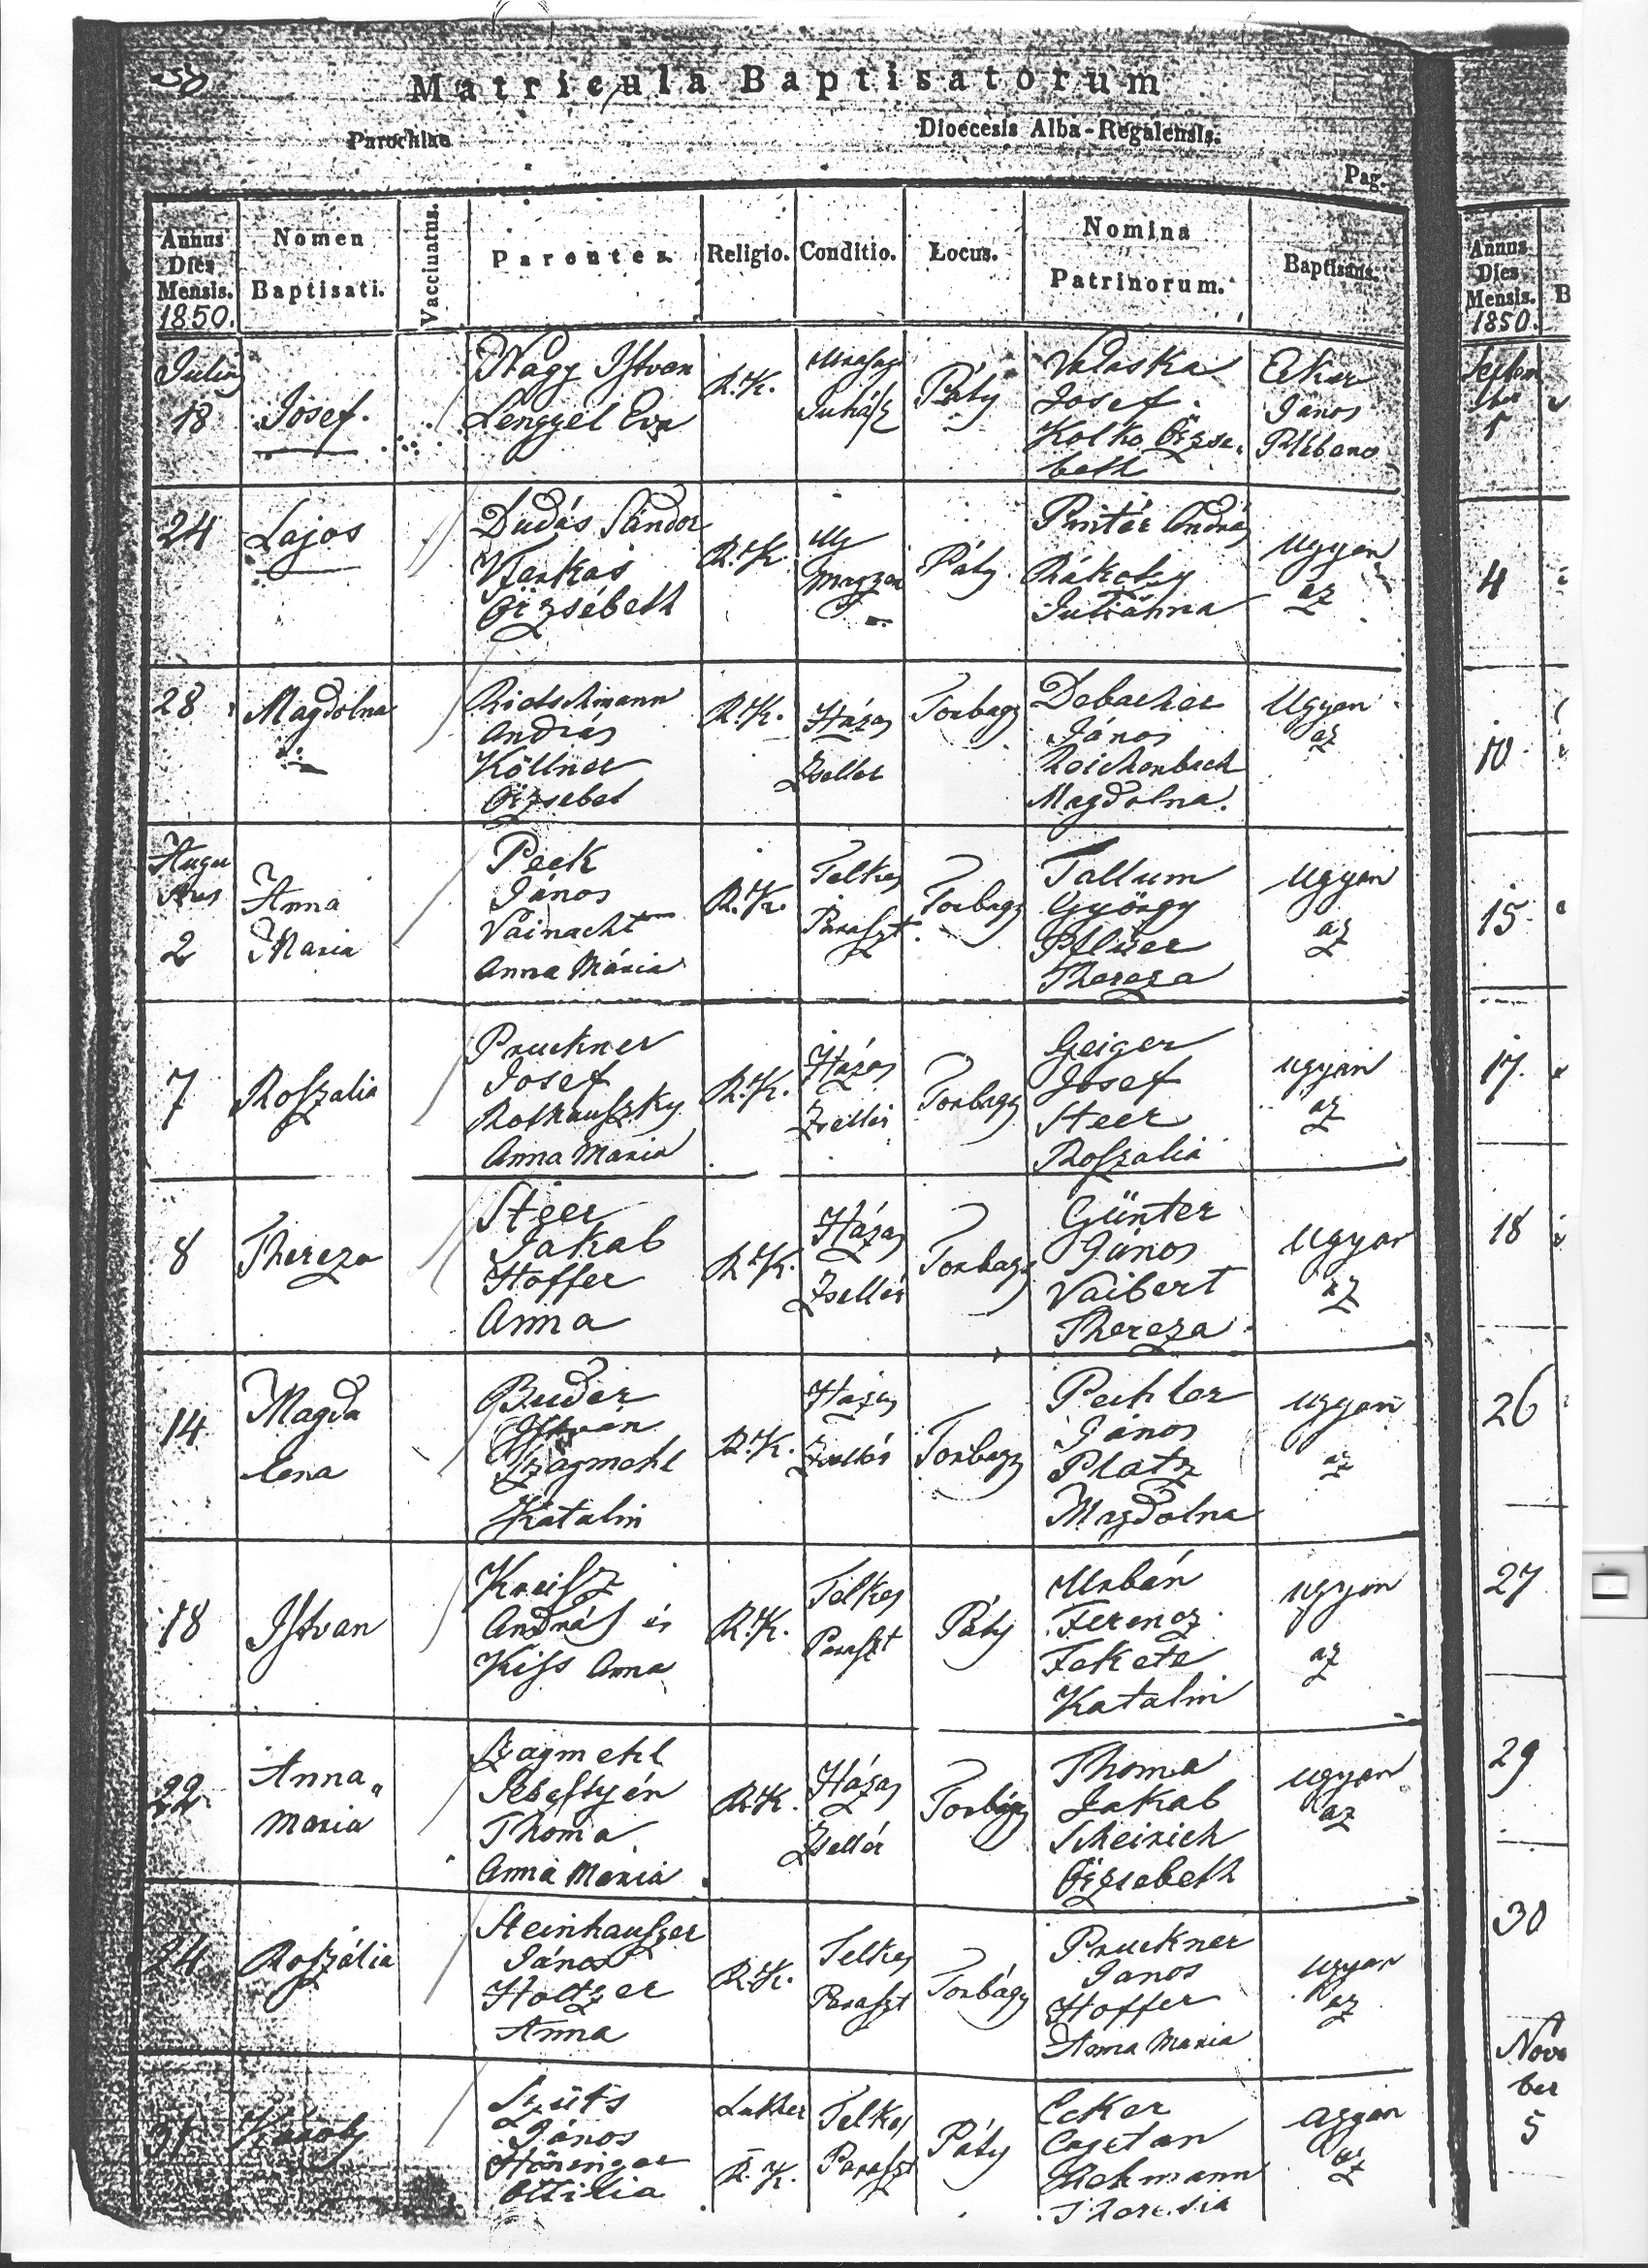 Matricula Baptisatorum
Parochiae
Dioecesis Alba-Regalensis.
Pag.
Annus
Dies
Mensis.
1850.
Nomen
Baptisati.
Vacciuatus.
Parentes.
Religio.
Conditio.
Locus.
Nomina
Patrinorum.
Baptisans.
Julius
18
Josef.
Nagy Istvan
Lengyel Eva
R. K.
Juhász
Páty
Valaska
Josef.
Kolko Örzse,
beth
János
Plébano
24
Lajos
Dudás Sándor
Farkas
Örzsébeth
R. K.
Páty
Pintér András
Juliánna
Ugyan
az
28
Magdolna
András
Köllner
Örzsebet
R. K.
Házas
Zsellér
Torbagy
Debacher
János
Reichenbach
Magdolna.
Ugyan
az
Augu
stus
2
Anna
Maria
Peck
János
Vainacht
Anna Mária
R. K.
Telkes
Paraszt.
Torbagy
Tallum
György
Thereza
Ugyan
az
7
Roszalia
Pruckner
Josef
Rothauszky
Anna Maria
R. K.
Házas
Zsellér
Torbagy
Geiger
Josef
Steer
Roszalia
ugyan
az
8
Thereza
Steer
Jakab
Hoffer
Anna
R. K.
Házas
Zsellér
Torbagy
Günter
János
Vaibert
Thereza
ugyan
az
14
Magda
lena
Buder
Istvan
Szágmehl
Katalin
R. K.
Házas
Zsellér
Torbagy
Pechler
János
Platz
Magdolna
ugyan
az
18
Istvan
Kreisz
András és
Kiss Anna
R. K.
Telkes
Paraszt
Páty
Urbán
Ferencz
Fekete
Katalin
ugyan
az
22
Anna
Maria
Szágmehl
Sebestyén
Thoma
Anna Maria
R. K.
Házas
Zsellér
Torbágy
Thoma
Jakab
Scheirich
Örzsebeth
ugyan
az
24
Roszália
Steinhauszer
János
Holtzer
Anna
R. K.
Telkes
Paraszt
Torbágy
Pruckner
Janos
Hoffer
Anna Maria
ugyan
az
31
Károly
Szüts
János
Höninger
Ottilia
Luther
R. K.
Telkes
Paraszt
Páty
Ecker
Cajetan
Theresia
ugyan
az
Annus
Dies
Mensis.
1850.
B
Septem
ber
1
4
10
15
17.
18
26
27
29
30
Nove
ber
5